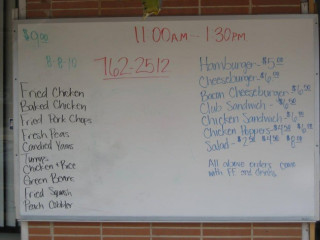 $9.00
11:00AM - 1:30PM
8-8-10
762-2512
Fried Chicken
Baked Chicken
Fried Pork Chops
Fresh Peas
Candied Yams
Turnips
Chicken & Rice
Green Beans
Fried Squash
Peach Cobbler
Hamburger - $5.00
Cheeseburger - $6.00
Bacon Cheeseburger - $6.50
Club Sandwich - $6.50
Chicken Sandwich - $6.00
Chicken Poppers - $4.50 $6.00
Salad - $2.50 $4.50 $6.00
All above orders come
with FF and drinks